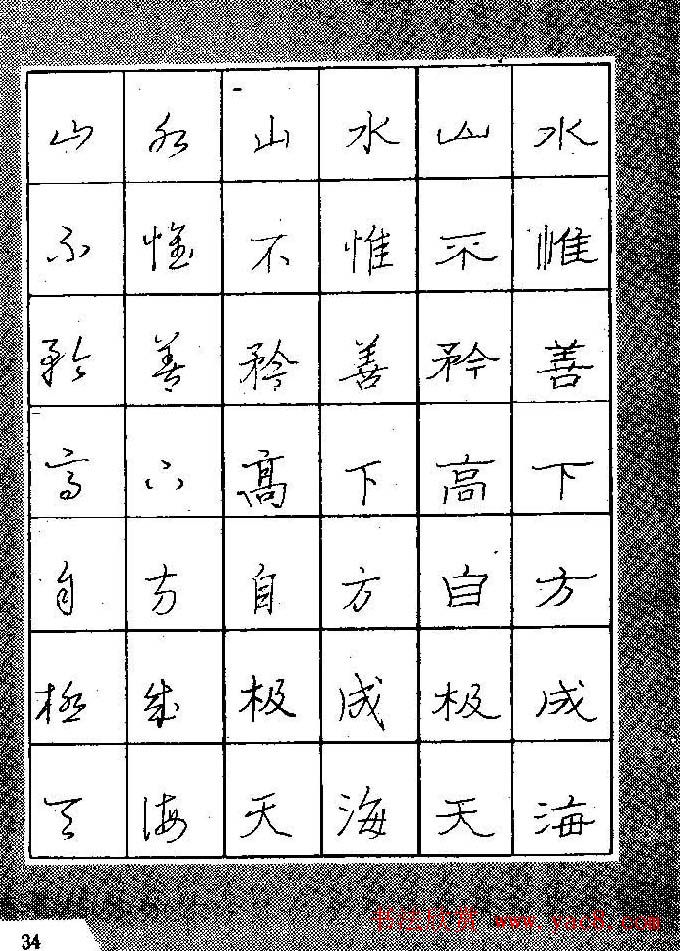 水惟善下方成海
山不矜高自极天
水惟善下方成海
山不矜髙自极天
水惟善下方成海
山不矜高自極天
34
书法欣赏 www.yac8.com